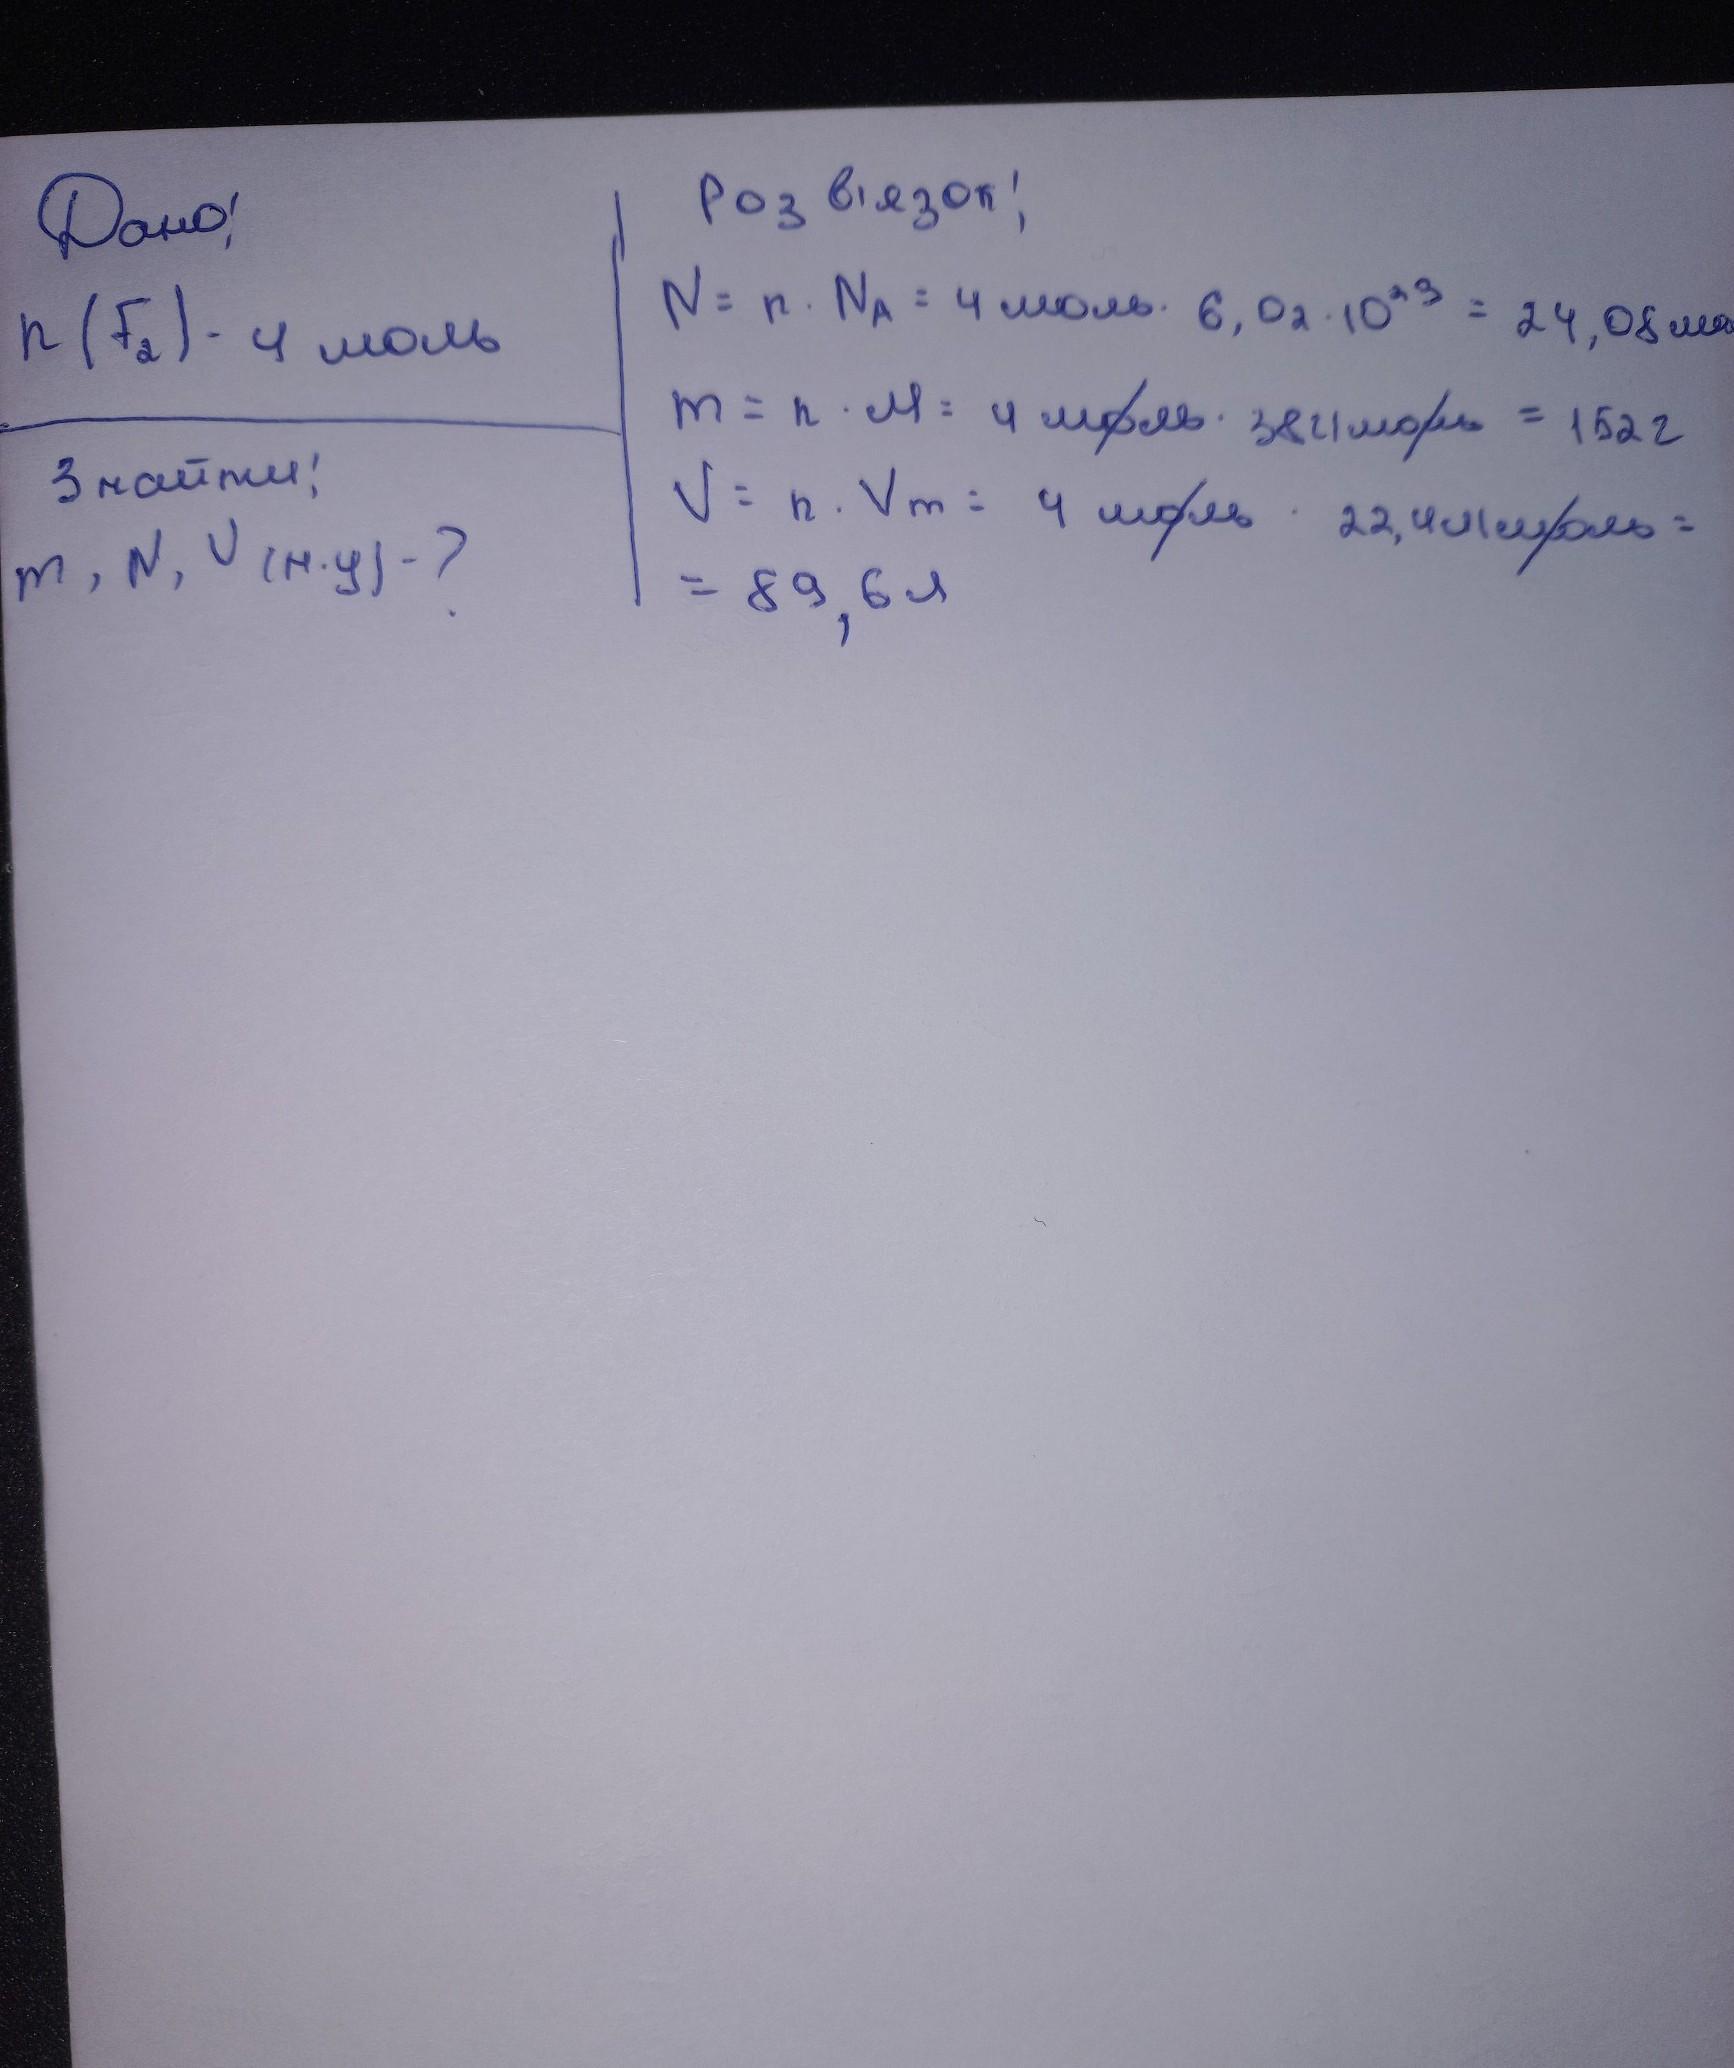 Дано!
n(F₂) - 4 моль
Знайти!
m, N, V (н.у) - ?
Розвіязок!
N = n · Nᴀ = 4 моль · 6,02 · 10²³ = 24,08
m = n · M = 4 моль · 38 г/моль = 152 г
V = n · Vm = 4 моль · 22,4 л/моль =
= 89,6 л